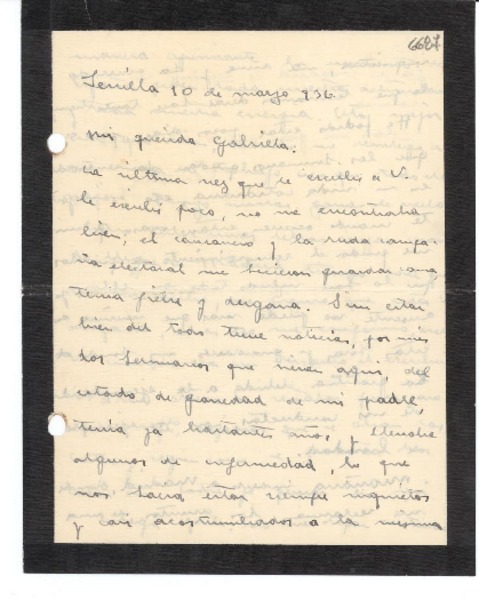 6627
Sevilla 10 de marzo 936.
Mi querida Gabriela.
La última vez que le escribí a V.
le escribí poco, no me encontraba
bien, el cansancio y la ruda campa-
ña electoral me hicieron guardar cama
tenía fiebre y desgana. Sin estar
bien del todo tuve noticias, por mis
dos hermanos que viven aquí, del
estado de gravedad de mi padre,
tenía ya bastantes años, y llevaba
algunos de enfermedad, lo que
nos hacía estar siempre inquietos
y casi acostumbrados a la misma